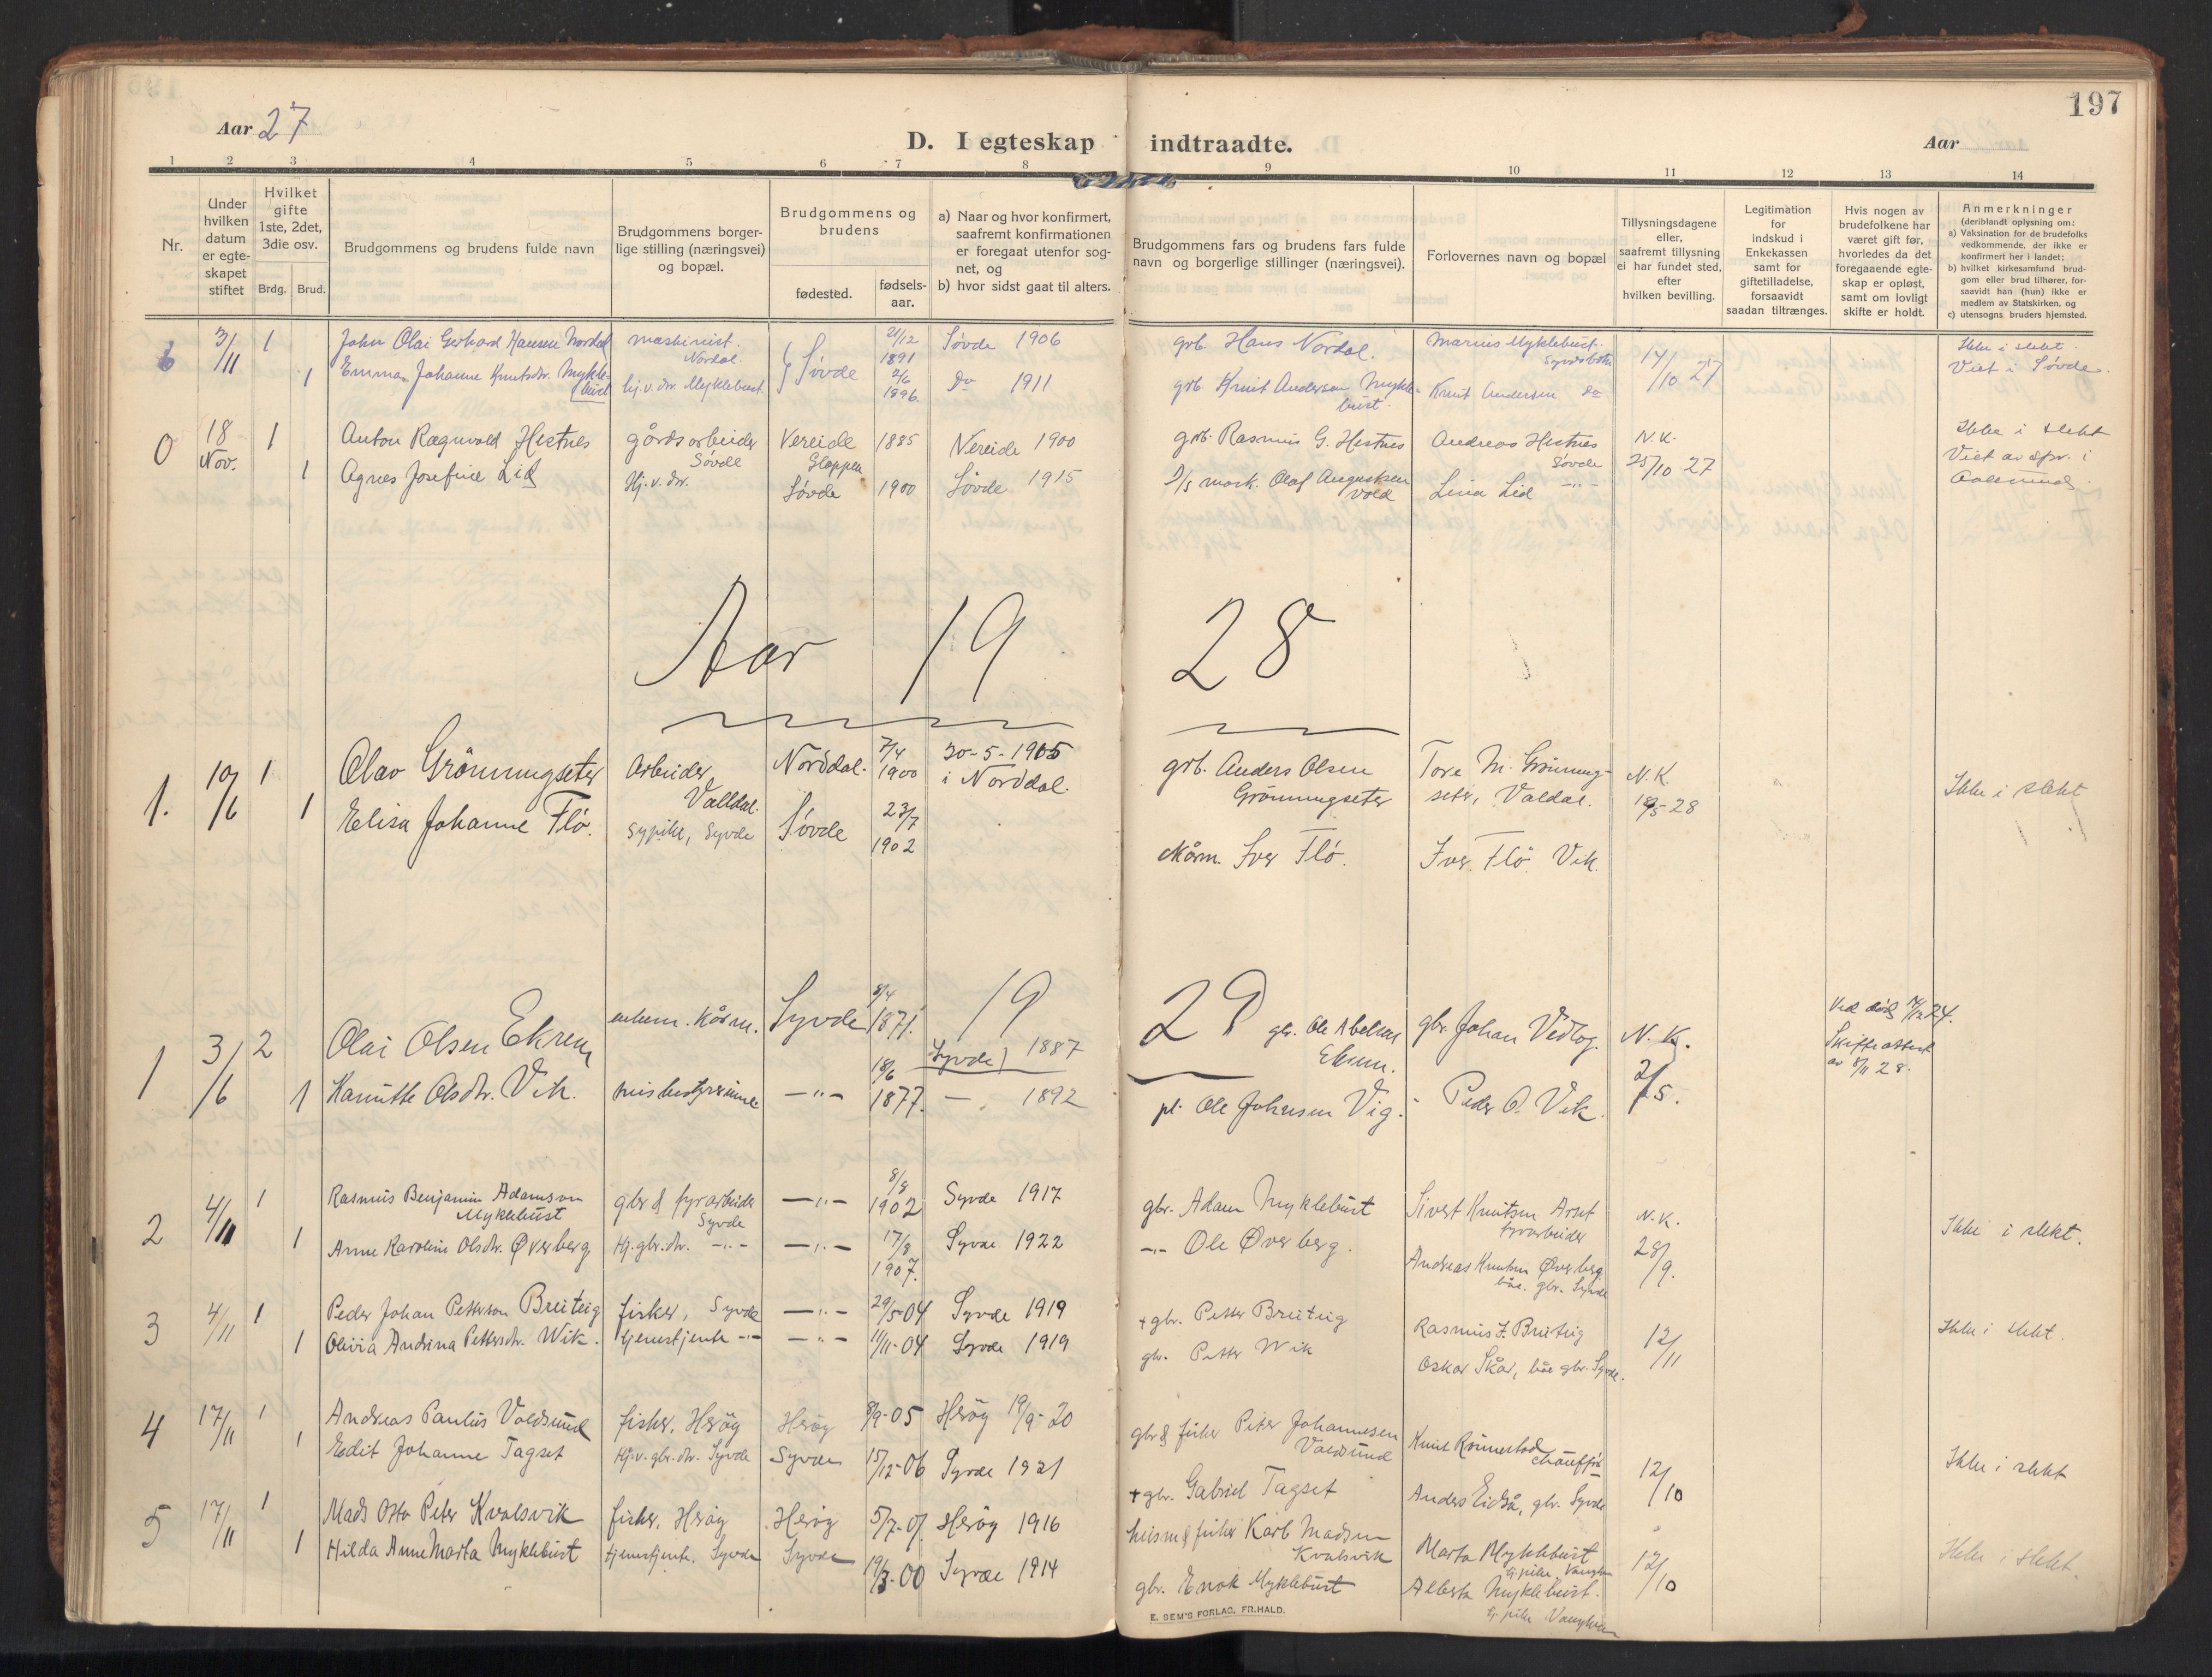 197
Aar 27
D. I egteskap indtraadte.
Aar
1 2 3 4 5 6 7 8 9 10 11 12 13 14
Nr.
Under hvilken datum er egte-skapet stiftet
Hvilket gifte 1ste, 2det, 3die osv.
Brdg. Brud.
Brudgommens og brudens fulde navn
Brudgommens borger-lige stilling (næringsvei) og bopæl.
Brudgommens og brudens
fødested.
fødsels-aar.
a) Naar og hvor konfirmert, saafremt konfirmationen er foregaat utenfor sog-net, og
b) hvor sidst gaat til alters.
Brudgommens fars og brudens fars fulde navn og borgerlige stillinger (næringsvei).
Forlovernes navn og bopæl
Tillysningsdagene eller, saafremt tillysning ei har fundet sted, efter hvilken bevilling.
Legitimation for indskud i Enkekassen samt for giftetilladelse, forsaavidt saadan tiltrænges.
Hvis nogen av brudefolkene har været gift før, hvorledes da det foregaaende egte-skap er opløst, samt om lovligt skifte er holdt.
Anmerkninger
(deriblandt oplysning om:
a) Vaksination for de brudefolks vedkommende, der ikke er konfirmert her i landet;
b) hvilket kirkesamfund brud-gom eller brud tilhører, for-saavidt han (hun) ikke er medlem av Statskirken, og
c) utensogns bruders hjemsted.
6 3/11 1 John Olai Gerhard Hansen Nordal maskinist. Nordal. Søvde 21/12 1891 Søvde 1906 grb. Hans Nordal. Marius Myklebust. Syvdsbotn 14/10 27 Ikke i slekt.
1 Emma Johanne Knutsdr. Myklebust hj.v. dr. Myklebust 2/6 1896. Do 1911 grb. Knut Andersen Myklebust. Knut Andersen Do Viet i Søvde.
0 18 Nov. 1 Anton Ragnvald Hestnes gårdsarbeider Søvde Vereide Gloppen 1885 Vereide 1900 grb. Rasmus G. Hestnes Andreas Hestnes Søvde N.K. 25/10 27 Ikke i slekt
1 Agnes Josefine Lid Hj.v. dr. Søvde 1900 Søvde 1915 Olaf Augustsen Vold Lina Lid -"- Viet av spr. i Aalesund
Aar 19 28
1. 10/6 1 Olav Grönningseter Arbeider Valldal. Norddal. 7/4 1900 30-5-1915 i Norddal. grb. Anders Olsen Grönningseter Tore M. Grönning-seter, Valdal. N.K. 19/5-28 Ikke i slekt
1 Elisa Johanne Flö. sypike, Syvde Søvde 23/7 1902 Mårm. Iver Flö. Iver Flö Vik.
19 29
1 3/6 2 Olai Olsen Ekrem enkem. kårm. Syvde 8/4 1871. Syvde 1887 gbr. Ole Abelsen Ekrem. gbr. Johan Vedlog. N.K. 2/5. Ved död 24. Skifteattest av 8/11 28.
1 Hanutte Olsdtr. Vik. husbestyrerinne -"- 18/6 1877. - 1892 pl. Ole Johnsen Vig. Peder O. Vik.
2 4/11 1 Rasmus Benjamin Adamson Myklebust gbr & fyrarbeider Syvde -"- 8/8 1902 Syvde 1917 gbr. Adam Myklebust Sivert Knutsen Arset fyrarbeider N.K. 28/9. Ikke i slekt.
1 Anne Karoline Olsdtr. Øverberg Hj. gbr.dtr. -"- -"- 17/8 1907. Syvde 1922 -"- Ole Øverberg. Andreas Knutsen Øverberg båe. gbr. Syvde
3 4/11 1 Peder Johan Petterson Breiteig fisker, Syvde -"- 29/5-04 Syvde 1919 + gbr. Petter Breiteig Rasmus J. Breiteig 12/11 Ikke i slekt.
1 Olivia Andrina Pettersdtr. Wik. tjenestjente -"- -"- 11/11-04 Syvde 1919 gbr. Petter Wik Oskar Skår, båe gbr. Syvde.
4 17/11 1 Andreas Paulus Voldsund fisker, Heröy Heröy 8/9-05 Heröy 19/9-20 gbr & fisker Peter Johannesen Voldsund Knut Rönnestad chauffør 12/10 Ikke i slekt
1 Edit Johanne Tagset Hj.v. gbr.dtr. Syvde Syvde 15/12-06 Syvde 1921 + gbr. Gabriel Tagset Anders Eidså, gbr. Syvde
5 17/11 1 Mads Otto Peter Kvalsvik fisker, Heröy Heröy 5/7-01 Heröy 1916 husm & fisker Karl Madsen Kvalsvik Marta Myklebust tj. pike, Vanylven 12/10 Ikke i slekt.
1 Hilda Anne Marta Myklebust tjenestjente, Syvde Syvde 19/3-00 Syvde 1914 gbr. Enok Myklebust Alberta Myklebust. tj. pike Vanylven
E. SEM'S FORLAG, FR.HALD.